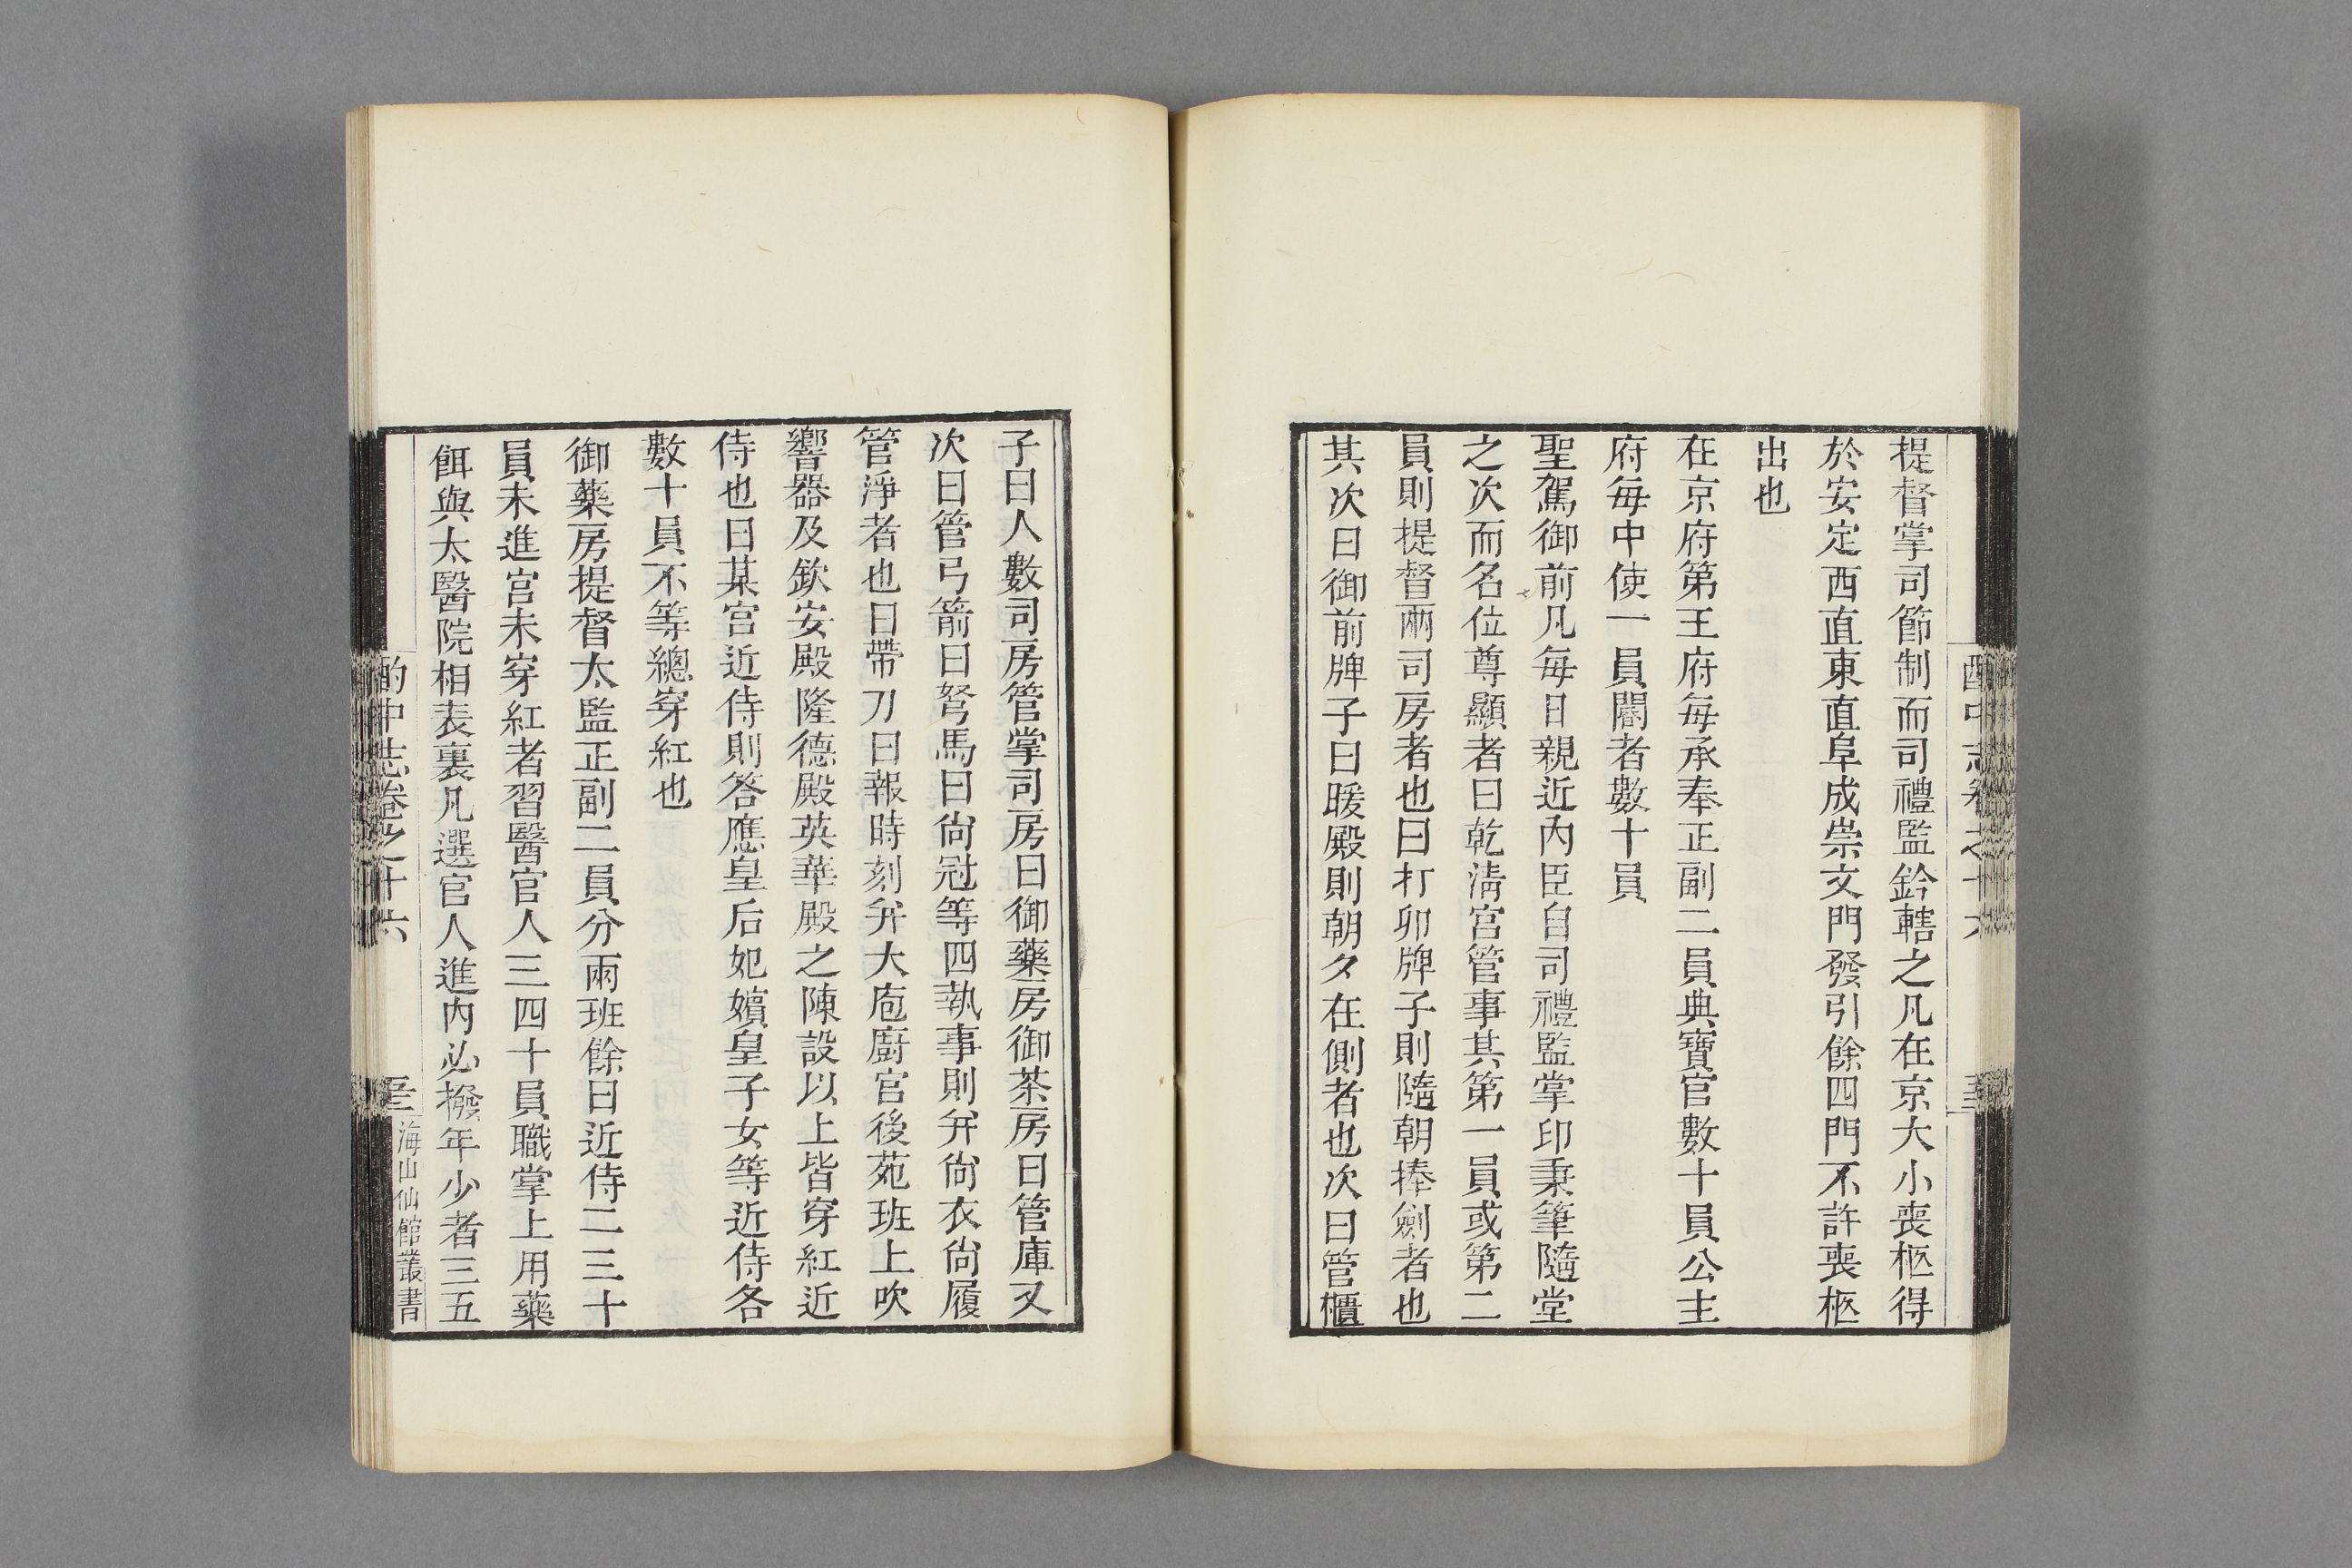 提督掌司節制而司禮監鈐轄之凡在京大小喪柩得
於安定西直東直阜成崇文門發引餘四門不許喪柩
出也
在京府第王府每承奉正副二員典寶官數十員公主
府每中使一員閽者數十員
聖駕御前凡每日親近內臣自司禮監掌印秉筆隨堂
之次而名位尊顯者曰乾淸宮管事其第一員或第二
員則提督兩司房者也曰打卯牌子則隨朝捧劍者也
其次曰御前牌子曰暖殿則朝夕在側者也次曰管櫃
子曰人數司房管掌司房曰御藥房御茶房曰管庫又
次曰管弓箭曰弩馬曰尙冠等四執事則弁尙衣尙履
管淨者也曰帶刀曰報時刻弁大庖廚宮後苑班上吹
響器及欽安殿隆德殿英華殿之陳設以上皆穿紅近
侍也曰某宮近侍則答應皇后妃嬪皇子女等近侍各
數十員不等總穿紅也
御藥房提督太監正副二員分兩班餘曰近侍二三十
員未進宮未穿紅者習醫官人三四十員職掌上用藥
餌與太醫院相表裏凡選官人進內必撥年少者三五
酌中志卷之十六
海山仙館叢書